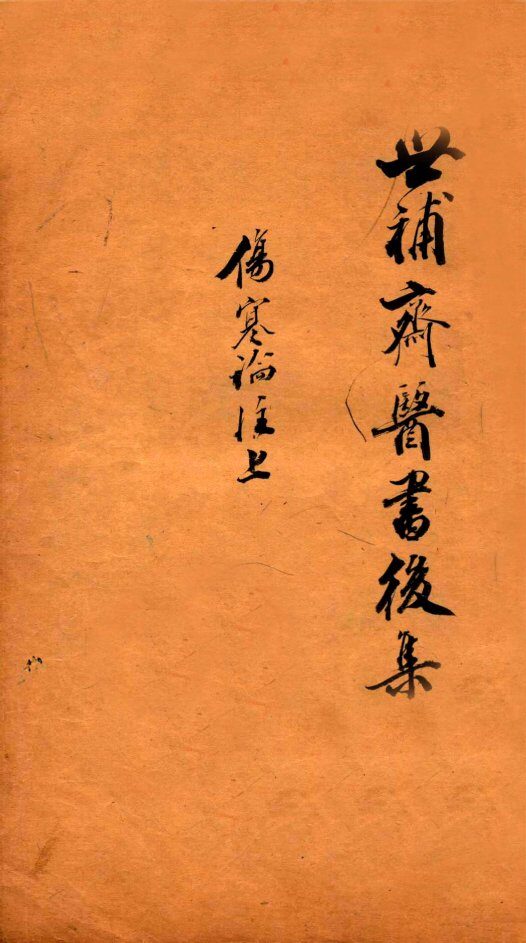 世補齋醫書後集
傷寒論注上